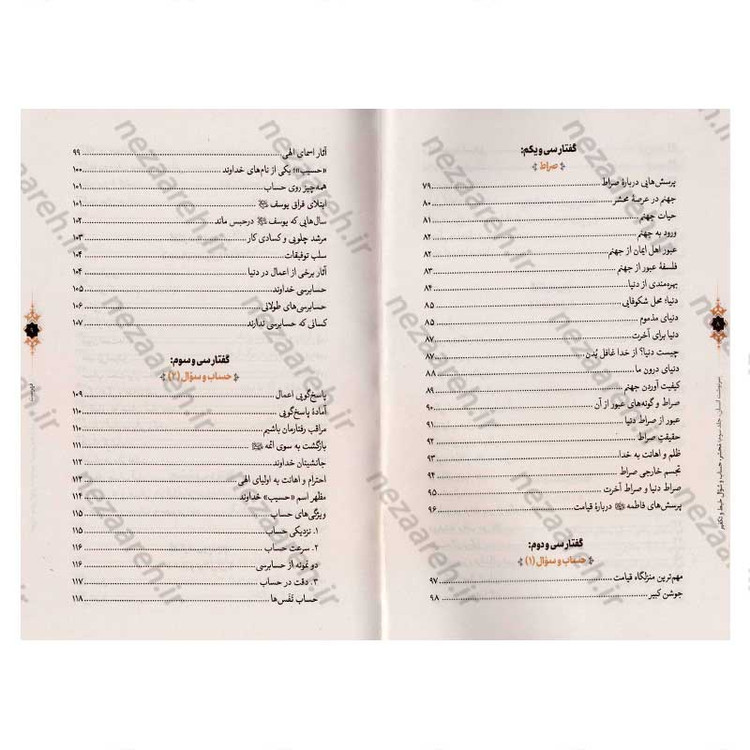 گفتار سی و یکم:
صراط
پرسش‌هایی دربارۀ صراط ۷۹
جهنم در عرصۀ محشر ۸۰
حیات جهنم ۸۱
ورود به جهنم ۸۲
عبور اهل ایمان از جهنم ۸۲
فلسفۀ عبور از جهنم ۸۳
بهره‌مندی از دنیا ۸۴
دنیا؛ محل شکوفایی ۸۵
دنیای مذموم ۸۵
دنیا برای آخرت ۸۷
چیست دنیا؟ از خدا غافل بُدن ۸۷
دنیای درون ما ۸۸
کیفیت آوردن جهنم ۸۹
صراط و گونه‌های عبور از آن ۹۰
عبور از صراط دنیا ۹۱
حقیقت صراط ۹۲
ظلم و اهانت به خدا ۹۳
تجسم خارجی صراط ۹۴
صراط دنیا و صراط آخرت ۹۵
پرسش‌های فاطمه دربارۀ قیامت ۹۶
گفتار سی و دوم:
حساب و سؤال (۱)
مهم‌ترین منزلگاه قیامت ۹۷
جوشن کبیر ۹۸
آثار اسمای الهی ۹۹
«حسیب»؛ یکی از نام‌های خداوند ۱۰۰
همه‌چیز روی حساب ۱۰۱
ابتلای فراق یوسف ۱۰۱
سال‌هایی که یوسف در حبس ماند ۱۰۲
مرشد چلویی و کسادی کار ۱۰۳
سلب توفیقات ۱۰۴
آثار برخی از اعمال در دنیا ۱۰۴
حسابرسی خداوند ۱۰۵
حسابرسی‌های طولانی ۱۰۶
کسانی که حسابرسی ندارند ۱۰۷
گفتار سی و سوم:
حساب و سؤال (۲)
پاسخ‌گویی اعمال ۱۰۹
آمادۀ پاسخ‌گویی ۱۱۰
مراقب رفتارمان باشیم ۱۱۰
بازگشت به سوی ائمه ۱۱۱
جانشینان خداوند ۱۱۲
احترام و اهانت به اولیای الهی ۱۱۲
مظهر اسم «حسیب» خداوند ۱۱۴
ویژگی‌های حساب ۱۱۵
۱. نزدیکی حساب ۱۱۵
۲. سرعت حساب ۱۱۶
دو نمونه از حسابرسی ۱۱۶
۳. دقت در حساب ۱۱۷
حساب نَفَس‌ها ۱۱۸
فهرست
nezaareh.ir